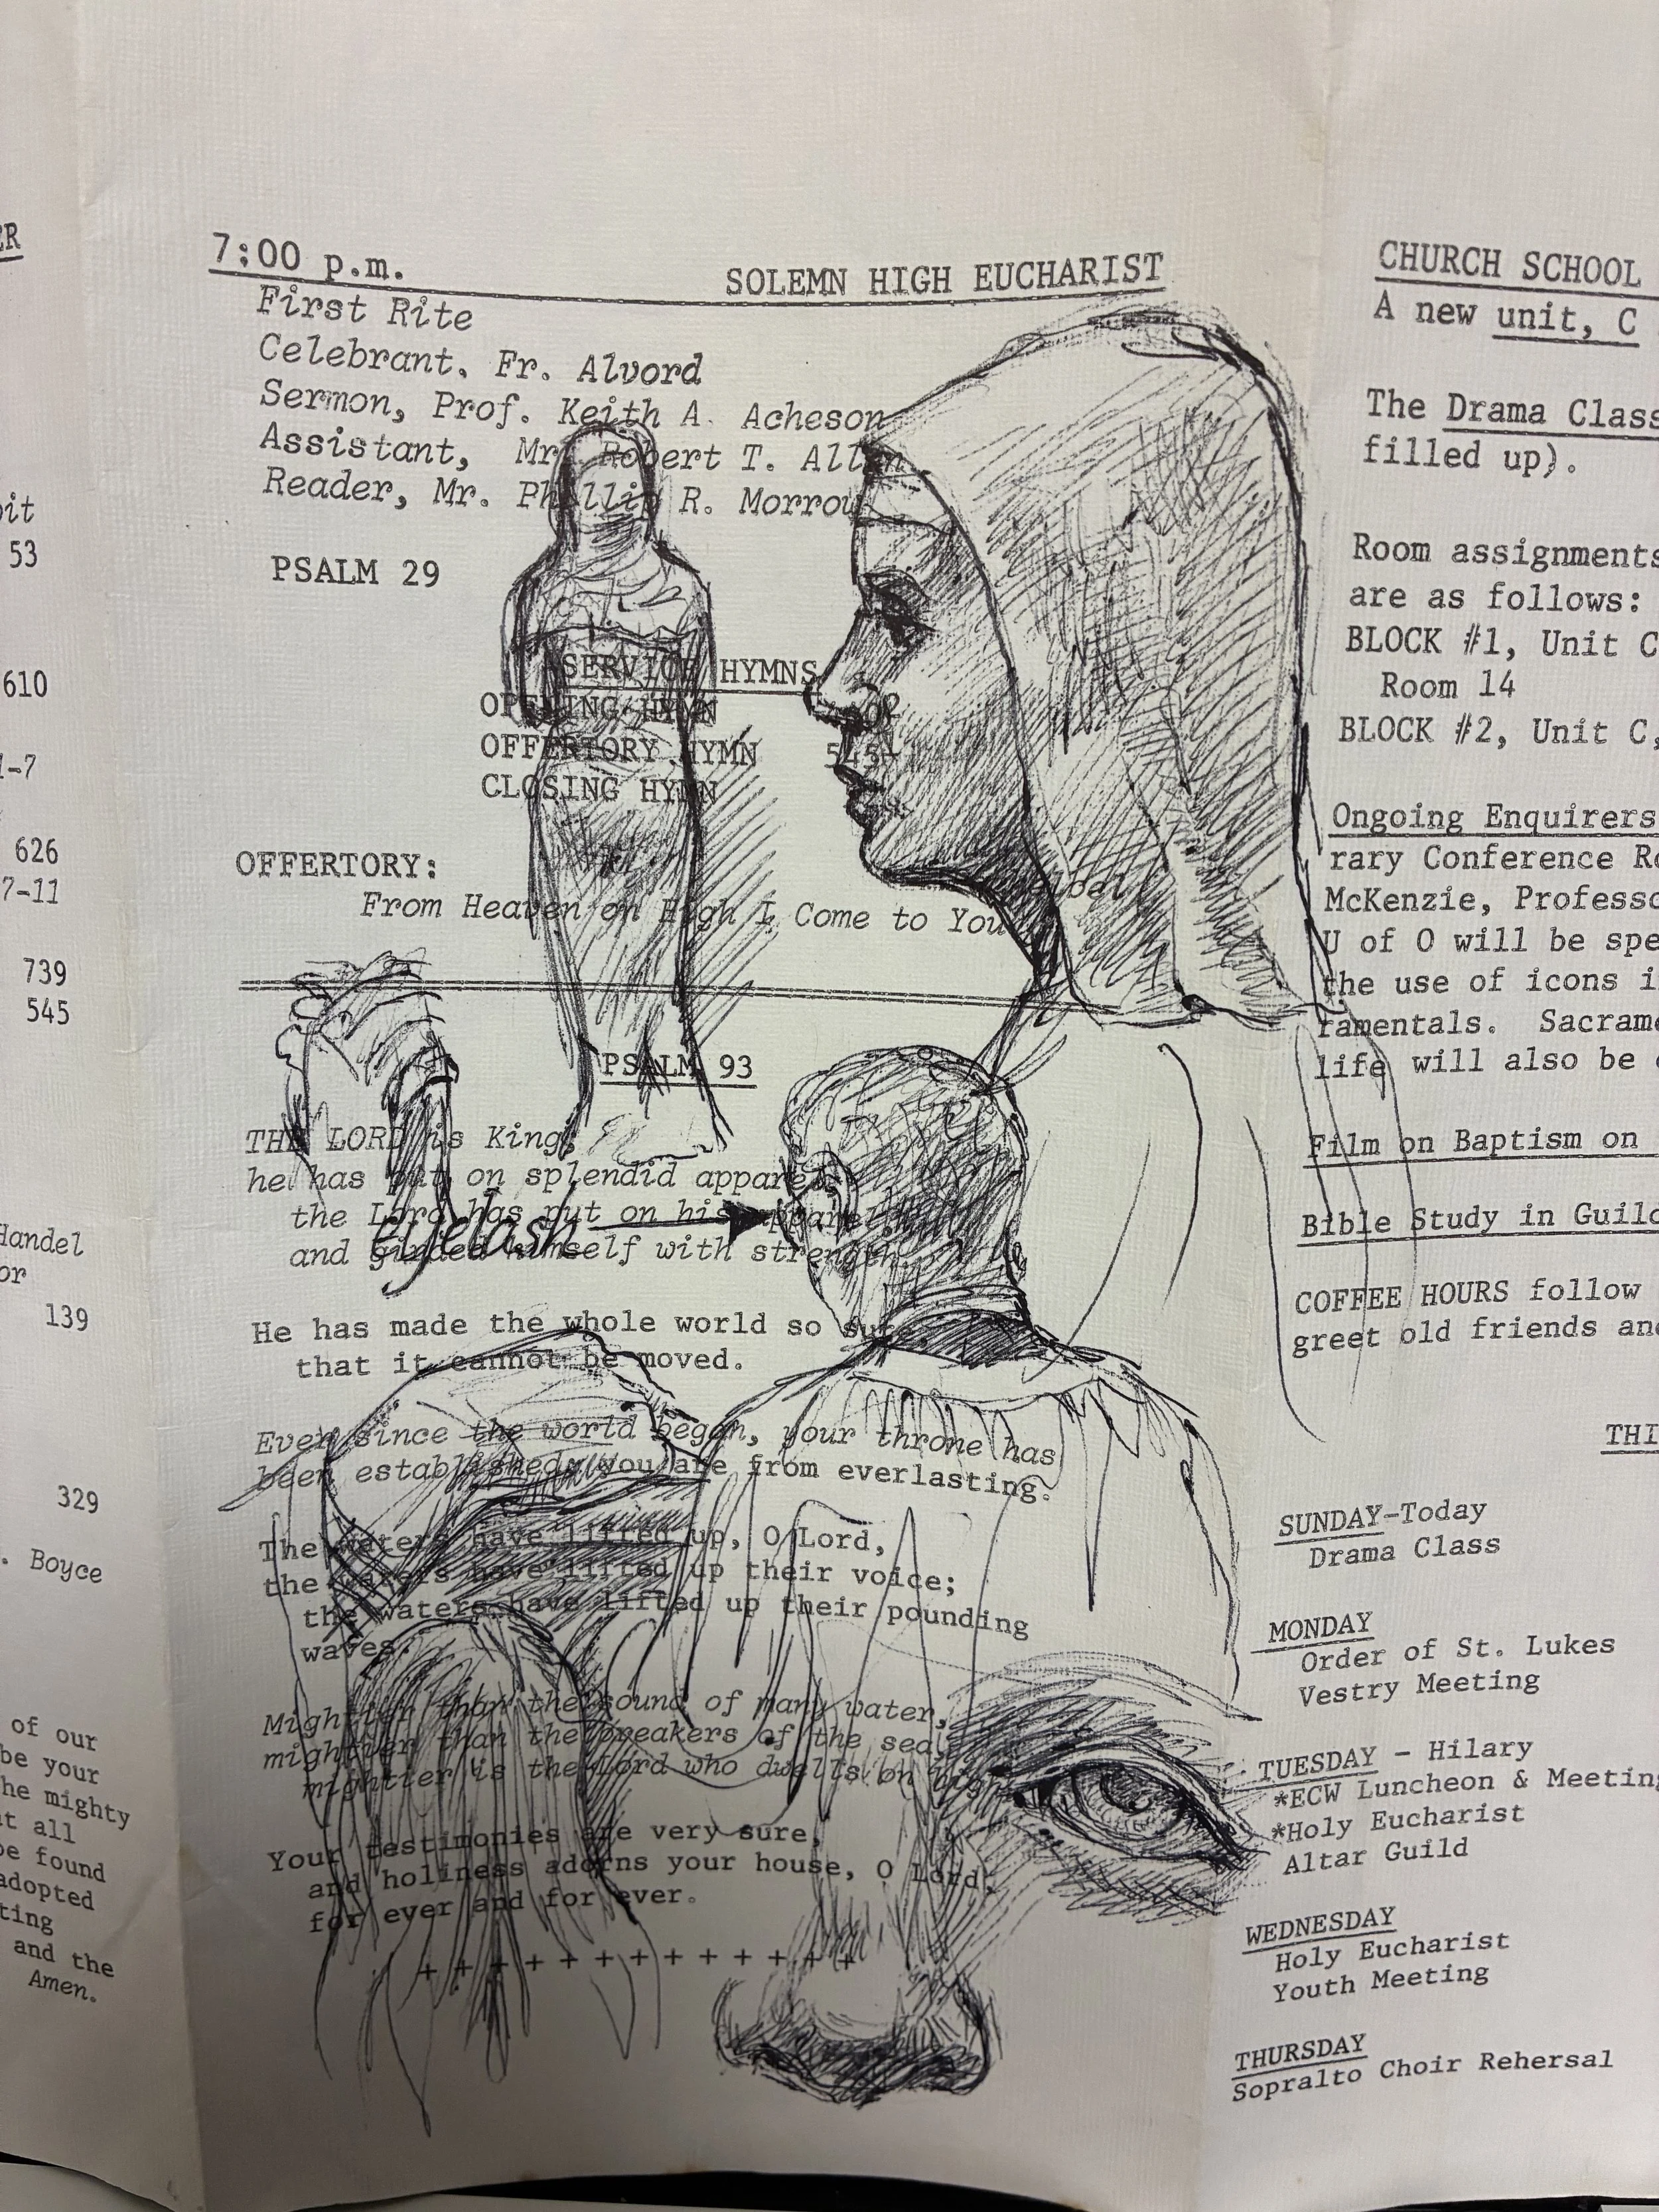 ER
it
53
610
1-7
626
7-11
739
545
Handel
or
139
329
. Boyce
of our
be your
he mighty
t all
be found
adopted
ting
and the
Amen.
7:00 p.m.
SOLEMN HIGH EUCHARIST
First Rite
Celebrant, Fr. Alvord
Sermon, Prof. Keith A. Acheson
Assistant, Mr. Robert T. Allen
Reader, Mr. Phillip R. Morrow
PSALM 29
SERVICE HYMNS
OPENING HYMN
OFFERTORY HYMN 545
CLOSING HYMN
OFFERTORY:
From Heaven on High I Come to You
PSALM 93
THE LORD is King;
he has put on splendid apparel;
the Lord has put on his apparel
and girded himself with strength.
eyelash
He has made the whole world so sure
that it cannot be moved.
Ever since the world began, your throne has
been established; you are from everlasting.
The waters have lifted up, O Lord,
the waters have lifted up their voice;
the waters have lifted up their pounding
waves.
Mightier than the sound of many water,
mightier than the breakers of the sea,
mightier is the Lord who dwells on high.
Your testimonies are very sure,
and holiness adorns your house, O Lord,
for ever and for ever.
+ + + + + + + + + + + + +
CHURCH SCHOOL
A new unit, C
The Drama Class
filled up).
Room assignments
are as follows:
BLOCK #1, Unit C
Room 14
BLOCK #2, Unit C,
Ongoing Enquirers
rary Conference Ro
McKenzie, Professo
U of O will be spe
the use of icons i
ramentals. Sacrame
life will also be
Film on Baptism on
Bible Study in Guild
COFFEE HOURS follow
greet old friends and
THI
SUNDAY-Today
Drama Class
MONDAY
Order of St. Lukes
Vestry Meeting
TUESDAY - Hilary
*ECW Luncheon & Meeting
*Holy Eucharist
Altar Guild
WEDNESDAY
Holy Eucharist
Youth Meeting
THURSDAY
Sopralto Choir Rehersal